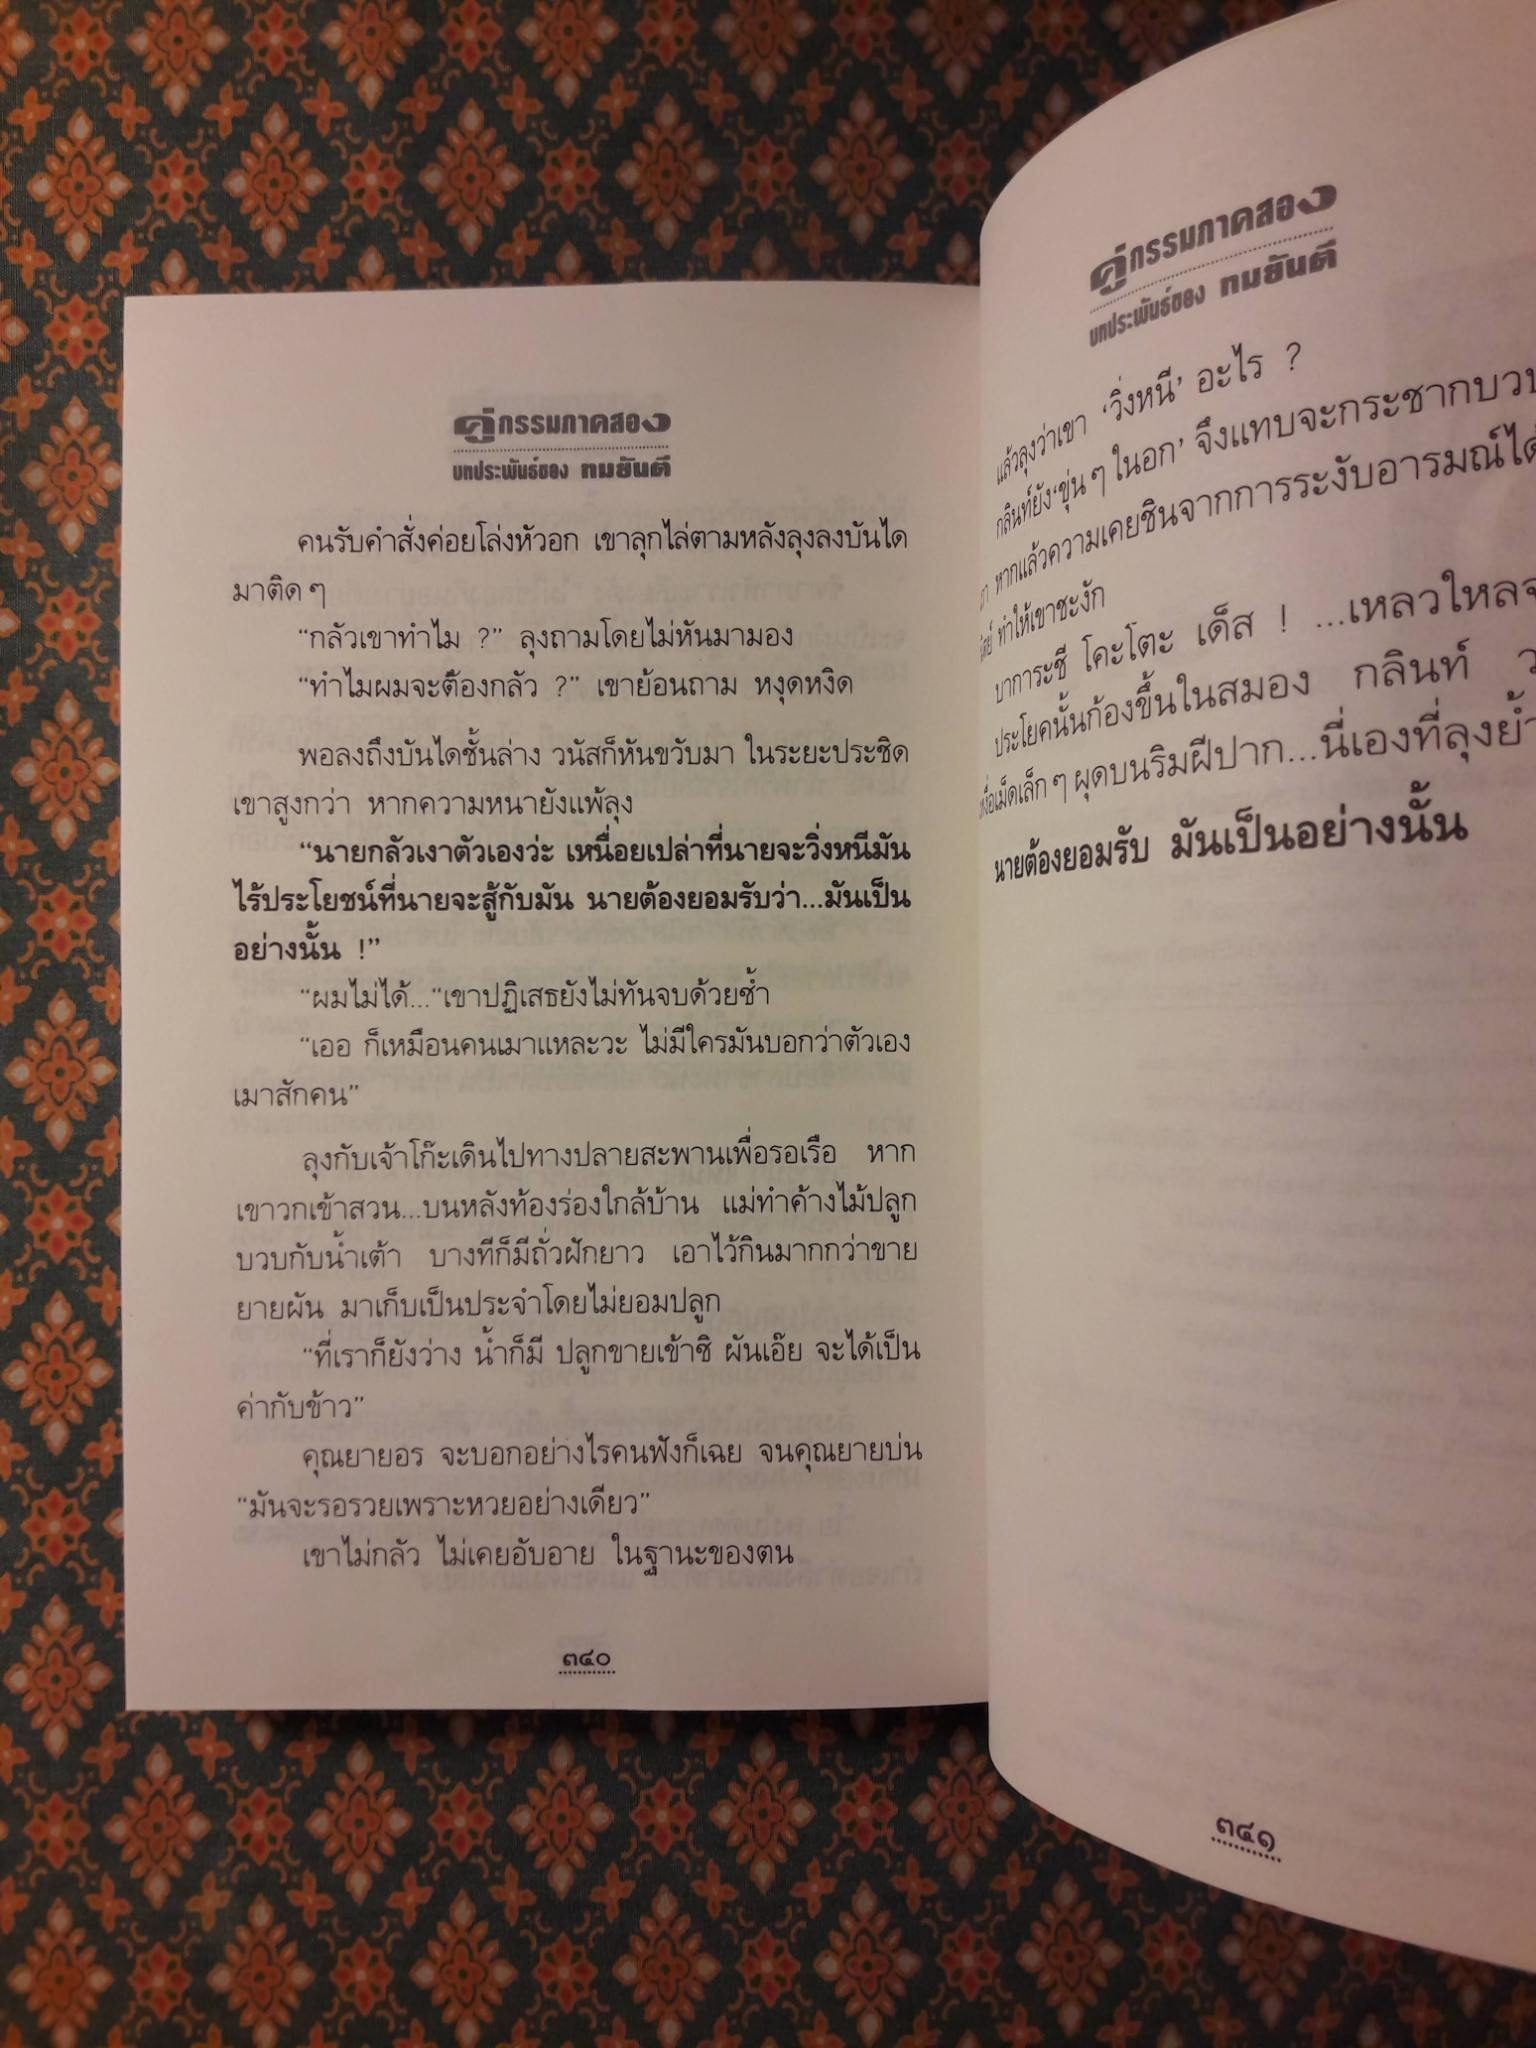 คู่กรรมภาคสอง
บทประพันธ์ของ ทมยันตี
คนรับคำสั่งค่อยโล่งหัวอก เขาลุกไล่ตามหลังลุงลงบันได
มาติดๆ
“กลัวเขาทำไม ?” ลุงถามโดยไม่หันมามอง
“ทำไมผมจะต้องกลัว ?” เขาย้อนถาม หงุดหงิด
พอลงถึงบันไดชั้นล่าง วนัสก็หันขวับมา ในระยะประชิด
เขาสูงกว่า หากความหนายังแพ้ลุง
“นายกลัวเงาตัวเองว่ะ เหนื่อยเปล่าที่นายจะวิ่งหนีมัน
ไร้ประโยชน์ที่นายจะสู้กับมัน นายต้องยอมรับว่า...มันเป็น
อย่างนั้น !”
“ผมไม่ได้...“เขาปฏิเสธยังไม่ทันจบด้วยซ้ำ
“เออ ก็เหมือนคนเมาแหละวะ ไม่มีใครมันบอกว่าตัวเอง
เมาสักคน”
ลุงกับเจ้าโก๊ะเดินไปทางปลายสะพานเพื่อรอเรือ หาก
เขาวกเข้าสวน...บนหลังท้องร่องใกล้บ้าน แม่ทำค้างไม้ปลูก
บวบกับน้ำเต้า บางทีก็มีถั่วฝักยาว เอาไว้กินมากกว่าขาย
ยายผัน มาเก็บเป็นประจำโดยไม่ยอมปลูก
“ที่เราก็ยังว่าง น้ำก็มี ปลูกขายเข้าซิ ผันเอ๊ย จะได้เป็น
ค่ากับข้าว”
คุณยายอร จะบอกอย่างไรคนฟังก็เฉย จนคุณยายบ่น
“มันจะรอรวยเพราะหวยอย่างเดียว”
เขาไม่กลัว ไม่เคยอับอาย ในฐานะของตน
๓๔๐
คู่กรรมภาคสอง
บทประพันธ์ของ ทมยันตี
แล้วลุงว่าเขา ‘วิ่งหนี’ อะไร ?
กลินท์ยัง‘ขุ่นๆ ในอก’ จึงแทบจะกระชากบวบ
หากแล้วความเคยชินจากการระงับอารมณ์ได้
ทำให้เขาชะงัก
บาการะชี โคะโตะ เด็ส ! ...เหลวไหล
ประโยคนั้นก้องขึ้นในสมอง กลินท์
เม็ดเล็กๆ ผุดบนริมฝีปาก...นี่เองที่ลุงย้ำ
นายต้องยอมรับ มันเป็นอย่างนั้น
๓๔๑